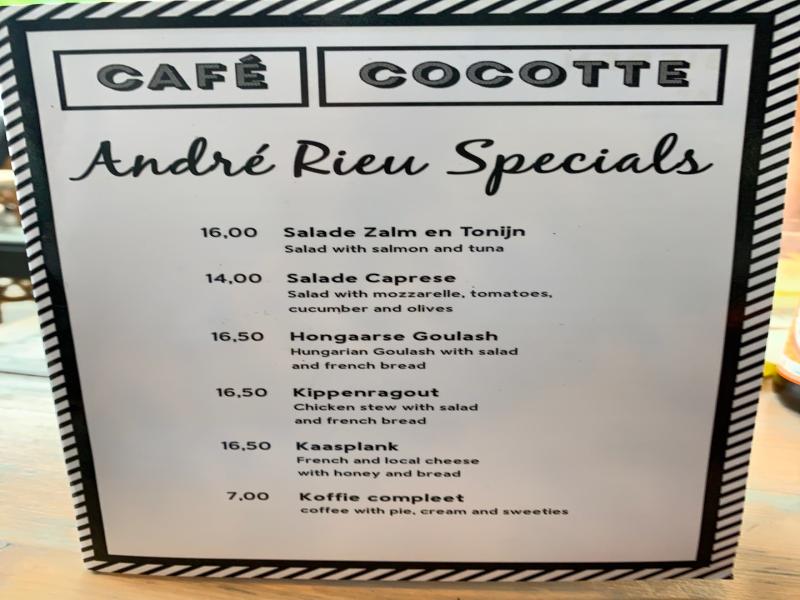 CAFÉ COCOTTE
André Rieu Specials
16,00 Salade Zalm en Tonijn
Salad with salmon and tuna
14,00 Salade Caprese
Salad with mozzarelle, tomatoes,
cucumber and olives
16,50 Hongaarse Goulash
Hungarian Goulash with salad
and french bread
16,50 Kippenragout
Chicken stew with salad
and french bread
16,50 Kaasplank
French and local cheese
with honey and bread
7,00 Koffie compleet
coffee with pie, cream and sweeties